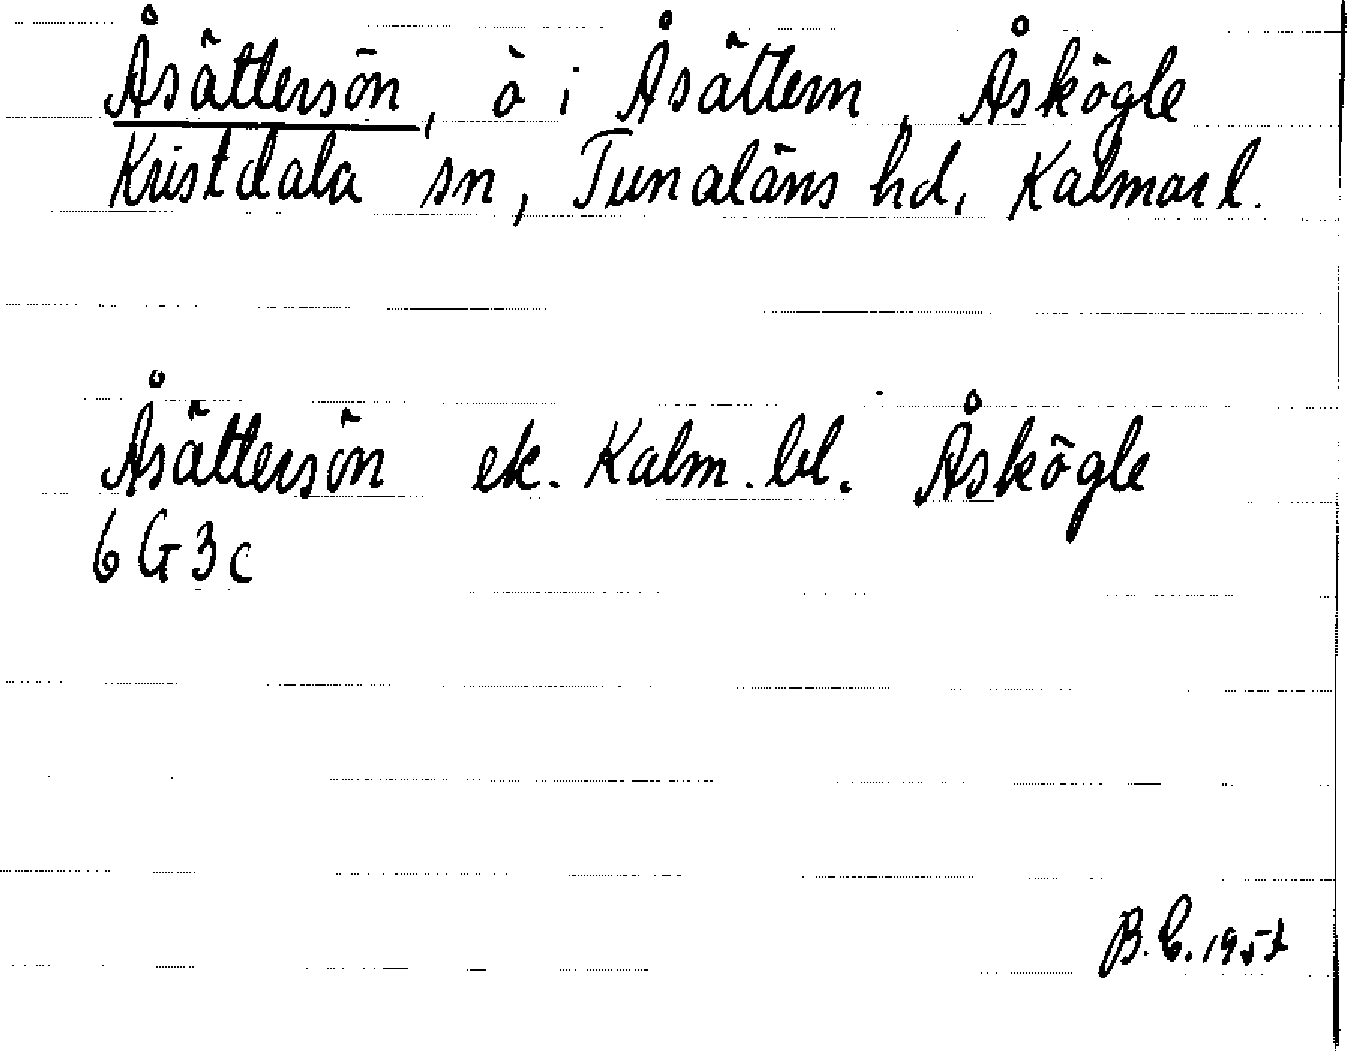 Åsättersön, ö i Åsättern, Åskögle
Kristdala sn, Tunaläns hd, Kalmar l.
Åsättersön ek. Kalm. bl. Åskögle
6G3c